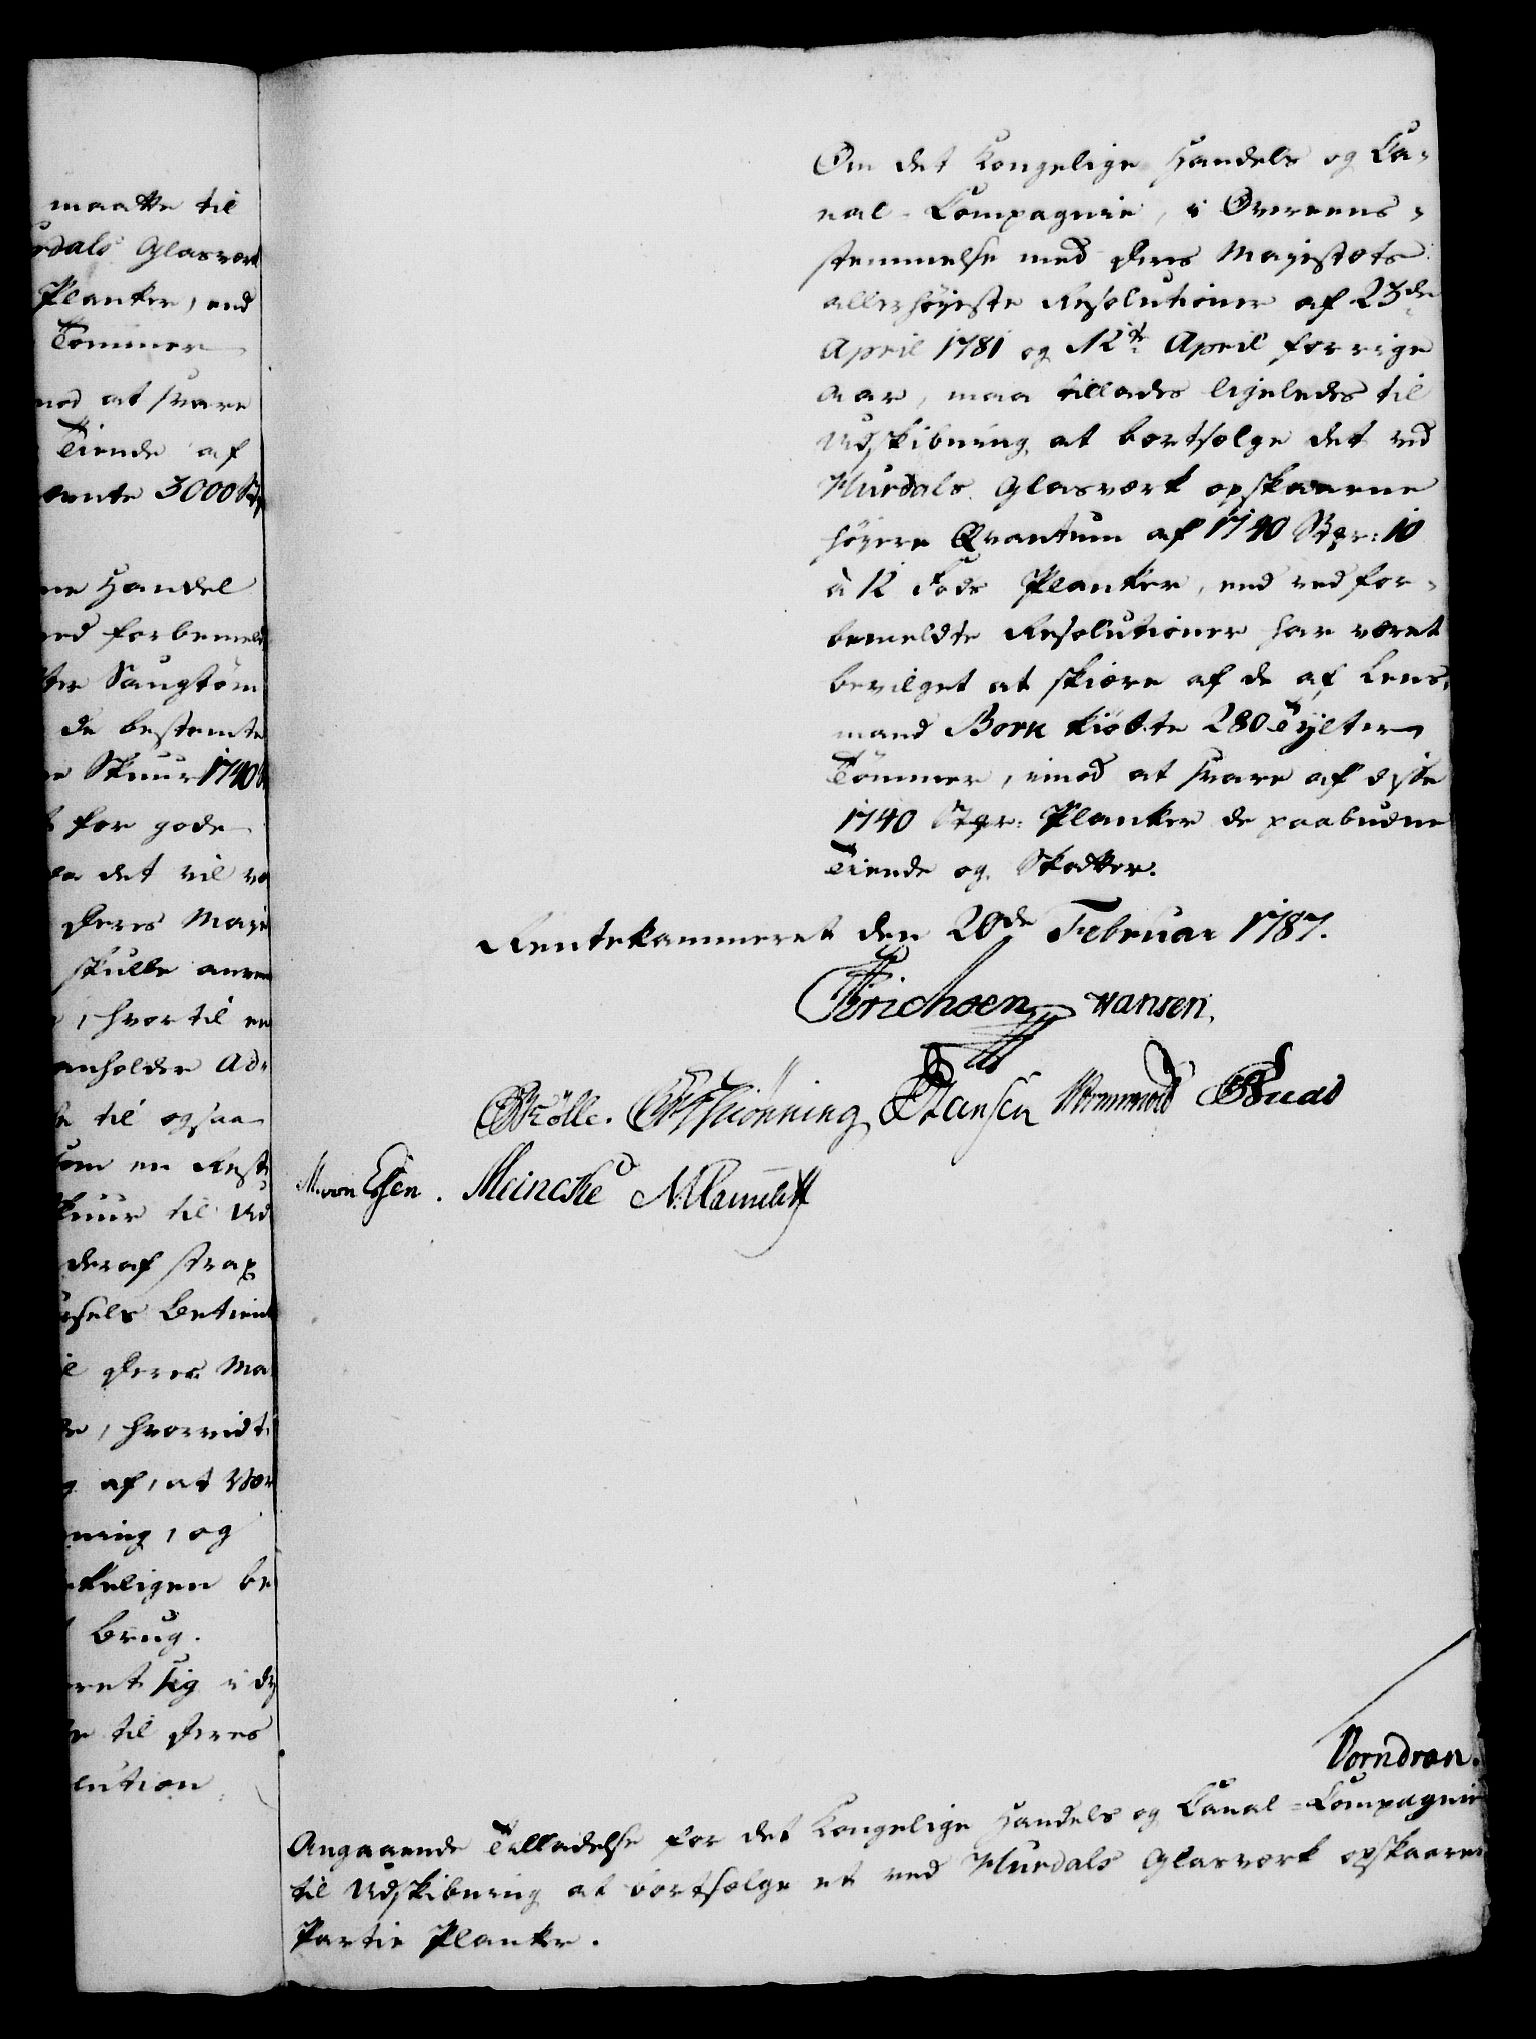 maatte til
rdals Glasværk
Planker, end
Tømmer
mod at svare
Tiende af
temte 3000 St
ne Handel
ved forbemeld
ter Saugtøm
de bestemte
e Skuur 1740
t for gode
da det vil væ
Deres Maje
skulle anven
, hvortil en
anholder Ad-
e til ogsaa
som en Rest
Skuur til Ud
deraf strax
rsels Betien
il Deres Ma
e, hvorvidt
g af, at Vær
ning, og
keligen be
t Brug.
eret sig i dy
e til Deres
lution
Om det Kongelige Handels og Ca-
nal-Compagnie, i Overeens-
stemmelse med Deres Majestæts
allerhøyeste Resolutioner af 23de
April 1781 og 12te April forrige
Aar, maa tillades ligeledes til
Udskibning at bortsælge det ved
Hurdals Glasværk opskaarne
høyere Qvantum af 1740 Stkr: 10
à 12 Fods Planker, end ved for-
bemeldte Resolutioner har været
bevilget at skiære af de af Lens-
mand Bork kiøbte 280 Tylter
Tømmer, imod at svare af disse
1740 Stkr: Planker de paabudne
Tiende og Skatter.
Rentekammeret den 20de Februar 1787.
Erichsen Hansen.
Rölle. Schiönning Hansen Wormskiold
M von Essen. Meincke
Vorndran.
Angaaende Tilladelse for det Kongelige Handels og Canal-Compagnie
til Udskibning at bortsælge et ved Hurdals Glasværk opskaaren
Partie Planker.